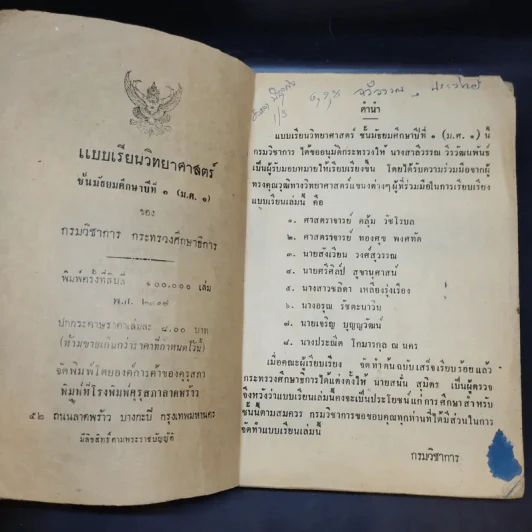 แบบเรียนวิทยาศาสตร์
ชั้นมัธยมศึกษาปีที่ ๑ (ม.ศ. ๑)
ของ
กรมวิชาการ กระทรวงศึกษาธิการ
พิมพ์ครั้งที่สิบสี่
๑๐๐,๐๐๐ เล่ม
พ.ศ. ๒๕๑๗
ปกกระดาษราคาเล่มละ ๘.๐๐ บาท
(ห้ามขายเกินกว่าราคาที่กำหนดไว้นี้)
จัดพิมพ์โดยองค์การค้าของคุรุสภา
พิมพ์ที่โรงพิมพ์คุรุสภาลาดพร้าว
๕๒ ถนนลาดพร้าว บางกะปิ กรุงเทพมหานคร
มีลิขสิทธิ์ตามพระราชบัญญัติ
คำนำ
แบบเรียนวิทยาศาสตร์ ชั้นมัธยมศึกษาปีที่ ๑ (ม.ศ. ๑) นี้
กรมวิชาการ ได้ขออนุมัติกระทรวงให้ นางสาลี่วรรณ วิรวัฒนพันธ์
เป็นผู้รับมอบหมายให้เรียบเรียงขึ้น โดยได้รับความร่วมมือจากผู้
ทรงคุณวุฒิทางวิทยาศาสตร์แขนงต่างๆ ผู้ที่ร่วมมือในการเรียบเรียง
แบบเรียนเล่มนี้ คือ
๑. ศาสตราจารย์ คลุ้ม วัชโรบล
๒. ศาสตราจารย์ ทองศุข พงศทัต
๓. นายสังเวียน วงศ์สุวรรณ
๔. นายศรีศิลป์ สุขานุศาสน์
๕. นางสาวชลิดา เหลืองรุ่งเรือง
๖. นางอรุณ รัชตะนาวิน
๗. นายเจริญ บุญญวัฒน์
๘. นางประณีต โกมารกุล ณ นคร
เมื่อคณะผู้เรียบเรียง จัดทำต้นฉบับเสร็จเรียบร้อยแล้ว
กระทรวงศึกษาธิการได้แต่งตั้งให้ นายสนั่น สุมิตร เป็นผู้ตรวจ
จึงหวังว่าแบบเรียนเล่มนี้คงจะเป็นประโยชน์แก่การศึกษาสำหรับ
ชั้นนี้ตามสมควร กรมวิชาการขอขอบคุณทุกท่านที่ได้มีส่วนในการ
จัดทำแบบเรียนเล่มนี้
กรมวิชาการ